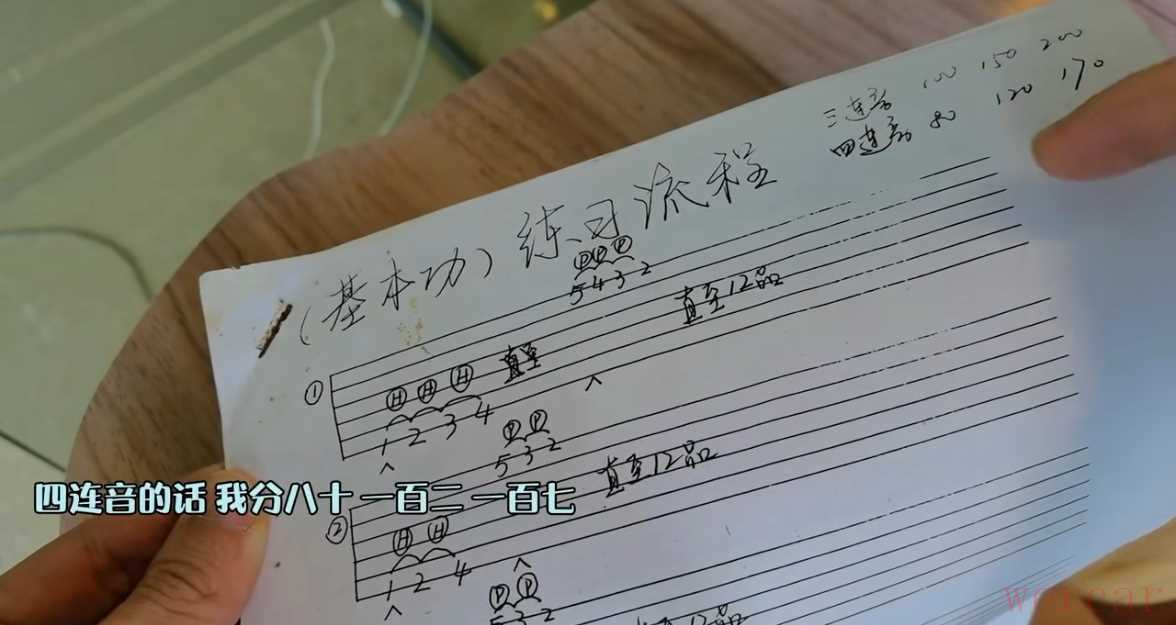 三连音 100 150 200
四连音 80 120 170
(基本功) 练习流程
P P P
5 4 3 2
直至12品
① H H H 直至
1 2 3 4
^ ^
P P
5 3 2
直至12品
四连音的话 我分八十 一百二 一百七
② H H
1 2 4
^ ^
P P
5 3 2
直至12品